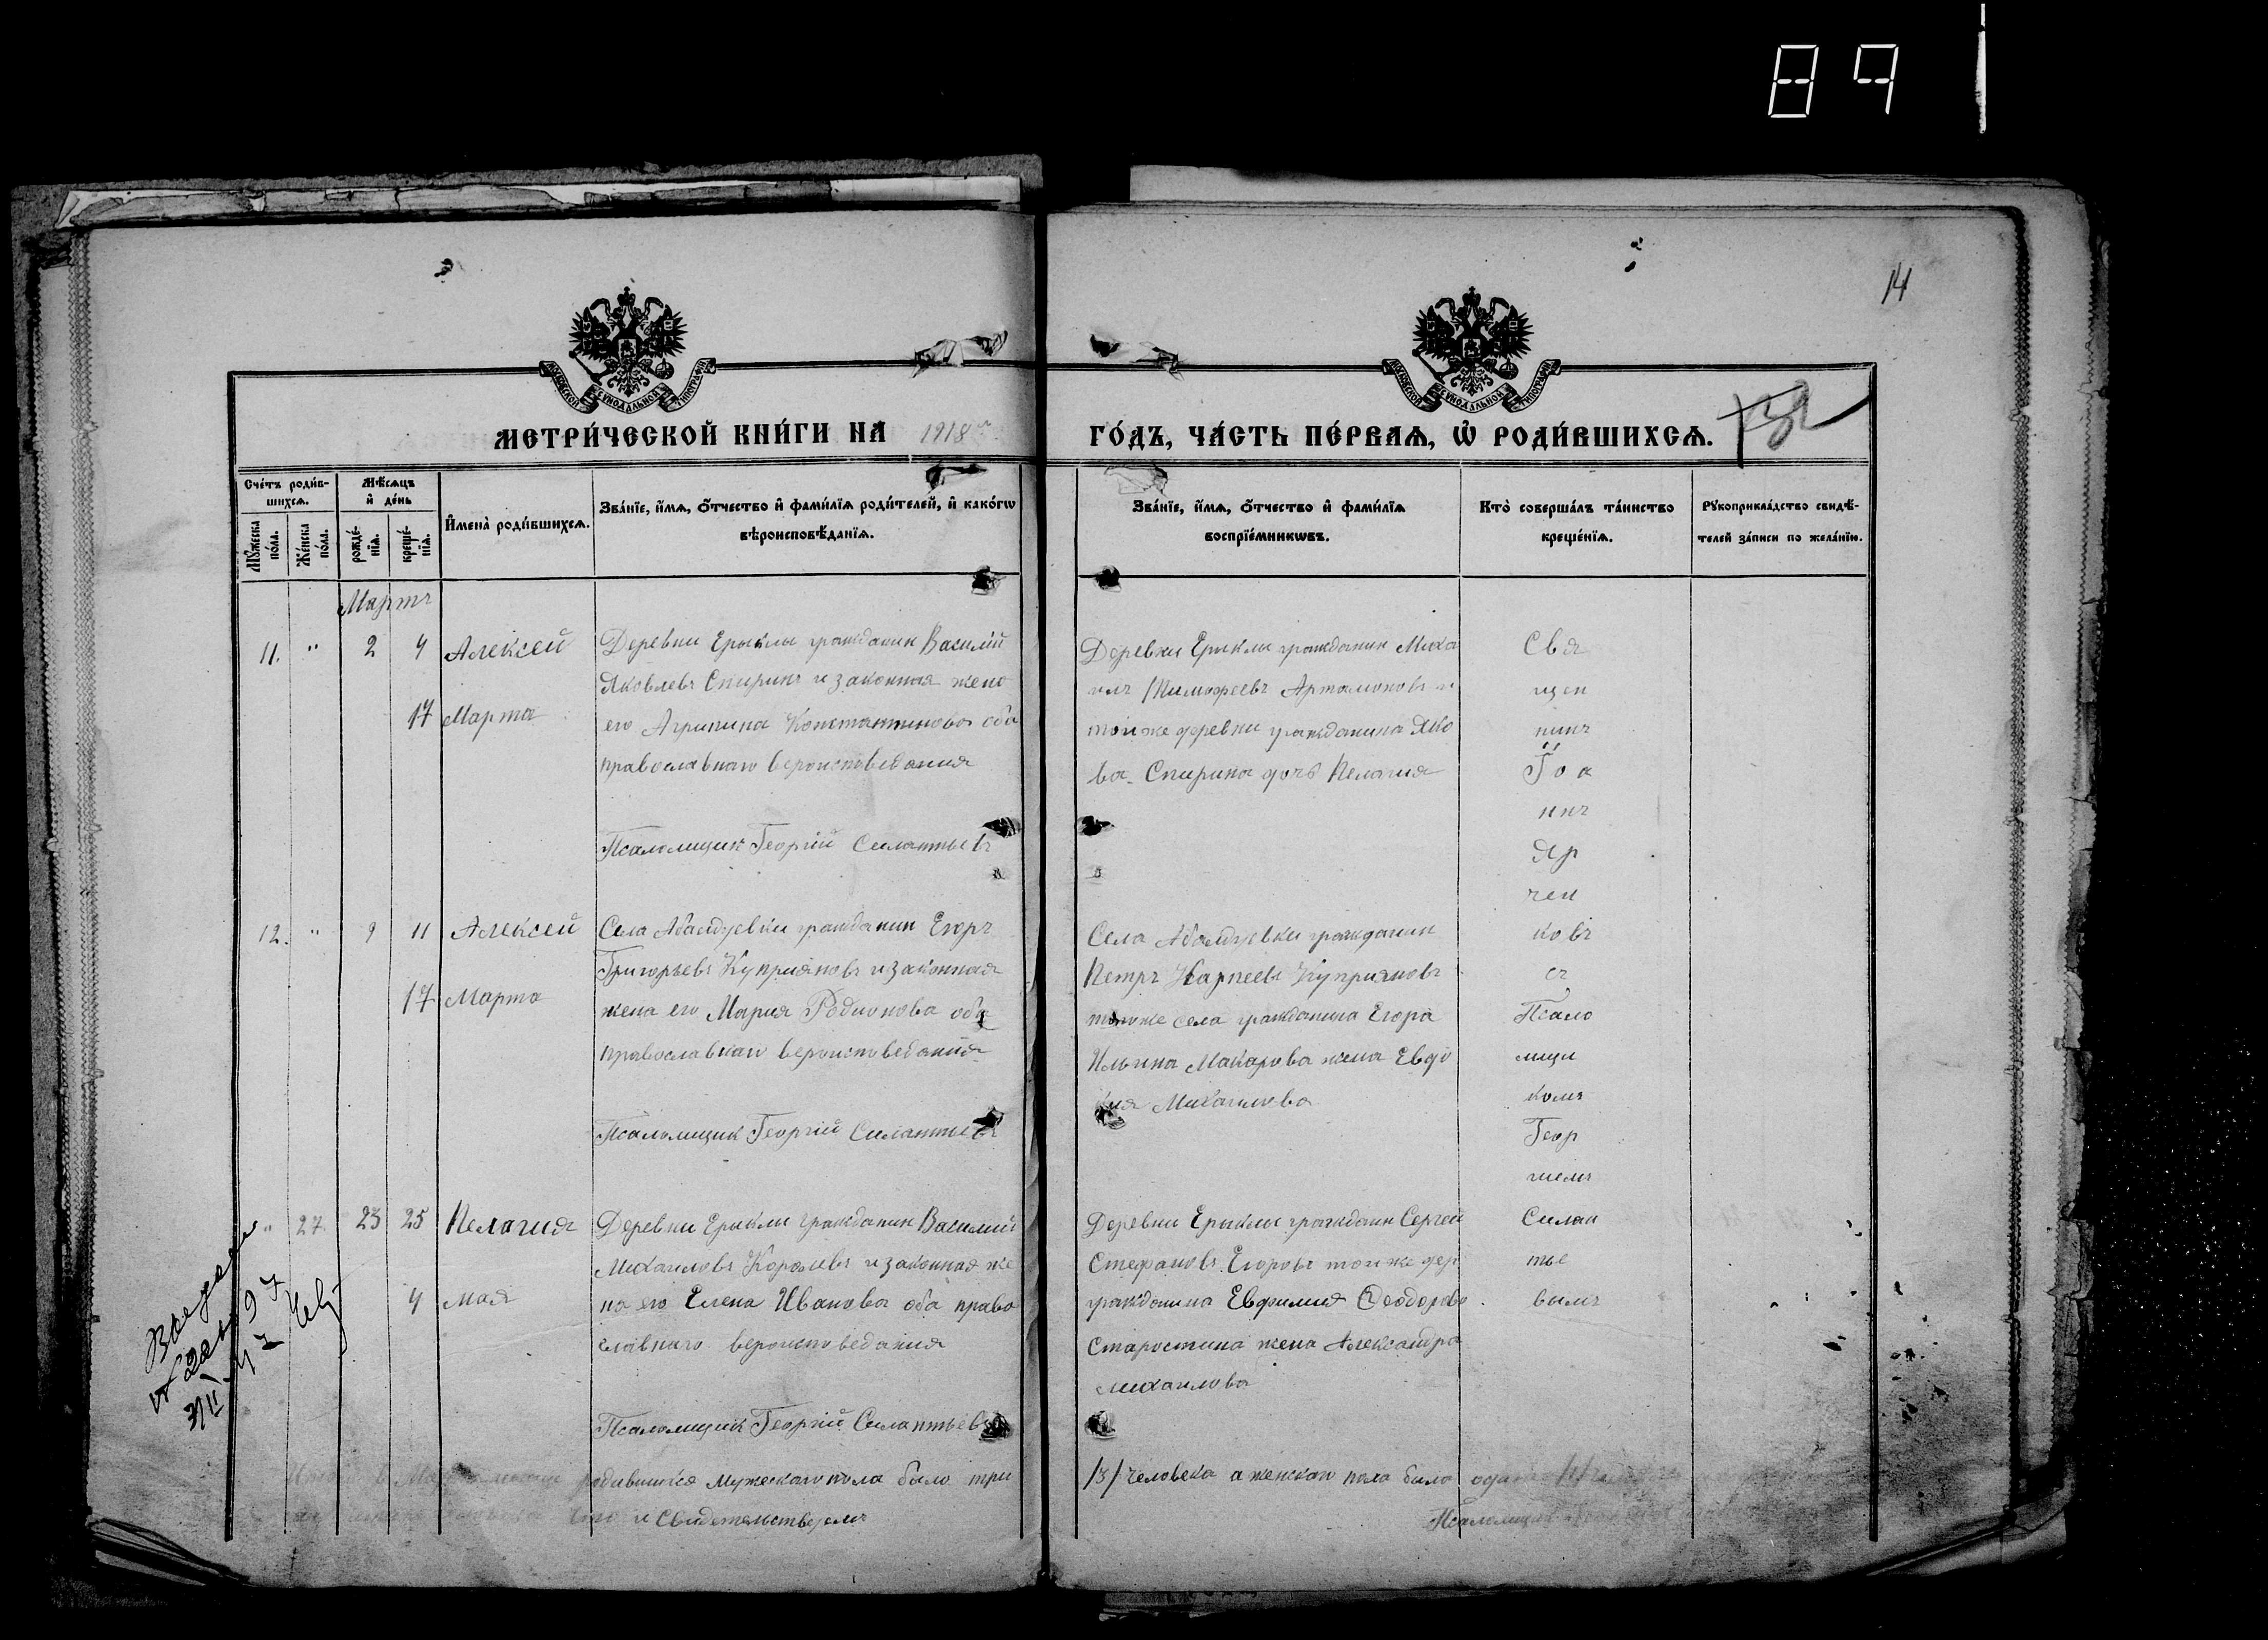 89
14
МЕТРИ́ЧЕСКОЙ КНИ́ГИ НА 1918 г. ГО́ДЪ, ЧА́СТЬ ПЕ́РВАѦ, Ѡ҆ РОДИ́ВШИХСѦ.
Сче́тъ роди́в-
шихсѧ.
Мꙋ́жеска по́ла.
Же́нска по́ла.
Мѣ́сѧцъ и҆ де́нь
рожде́-
нїѧ.
креще́-
нїѧ.
И҆мена̀ роди́вшихсѧ.
Зва́нїе, и҆́мѧ, ѻ҆́тчество и҆ фами́лїѧ роди́телей, и҆ како́гѡ
вѣроисповѣ́данїѧ.
Зва́нїе, и҆́мѧ, ѻ҆́тчество и҆ фами́лїѧ
воспрїе́мникѡвъ.
Кто̀ соверша́лъ та́инство
креще́нїѧ.
Рꙋкоприкла́дство свидѣ́-
телей за́писи по жела́нїю.
Мартъ
11. " 2 4 Алексей
17 Марта
Деревни Ерыклы гражданин Василий
Яковлевъ Спиринъ и законная жена
его Агрипина Константинова оба
православнаго вероисповедания
Псаломщик Георгий Силантьевъ
Деревни Ерыклы гражданин Миха
илъ Тимофеевъ Артамоновъ и
той же деревни гражданина Яко
ва Спирина дочь Пелагия
12. " 9 11 Алексей
17 Марта
Села Абалдуевки гражданин Егоръ
Григорьевъ Куприяновъ и законная
жена его Мария Родионова оба
православнаго вероисповедания
Псаломщик Георгий Силантьевъ
Села Абалдуевки гражданин
Петръ Карпеевъ Куприяновъ
тогоже села гражданина Егора
Ильина Макарова жена Евдо
кия Михаилова
" 27. 23 25 Пелагия
4 Мая
Деревни Ерыклы гражданин Василий
Михаиловъ Королевъ и законная же
на его Елена Иванова оба право
славнаго вероисповедания
Псаломщик Георгий Силантьевъ
Деревни Ерыклы гражданин Сергей
Стефановъ Егоровъ той же дер
гражданина Евфимия Феодорова
Старостина жена Александра
Михаилова
Свя
щен
никъ
Іоа
ннъ
Яр
чен
ковъ
съ
Псало
мщи
комъ
Геор
гиемъ
Силан
тье
вымъ
родившихся мужескаго пола было три /3/ человека а женскаго пола было один /1/
и свидетельствуемъ
Псаломщик